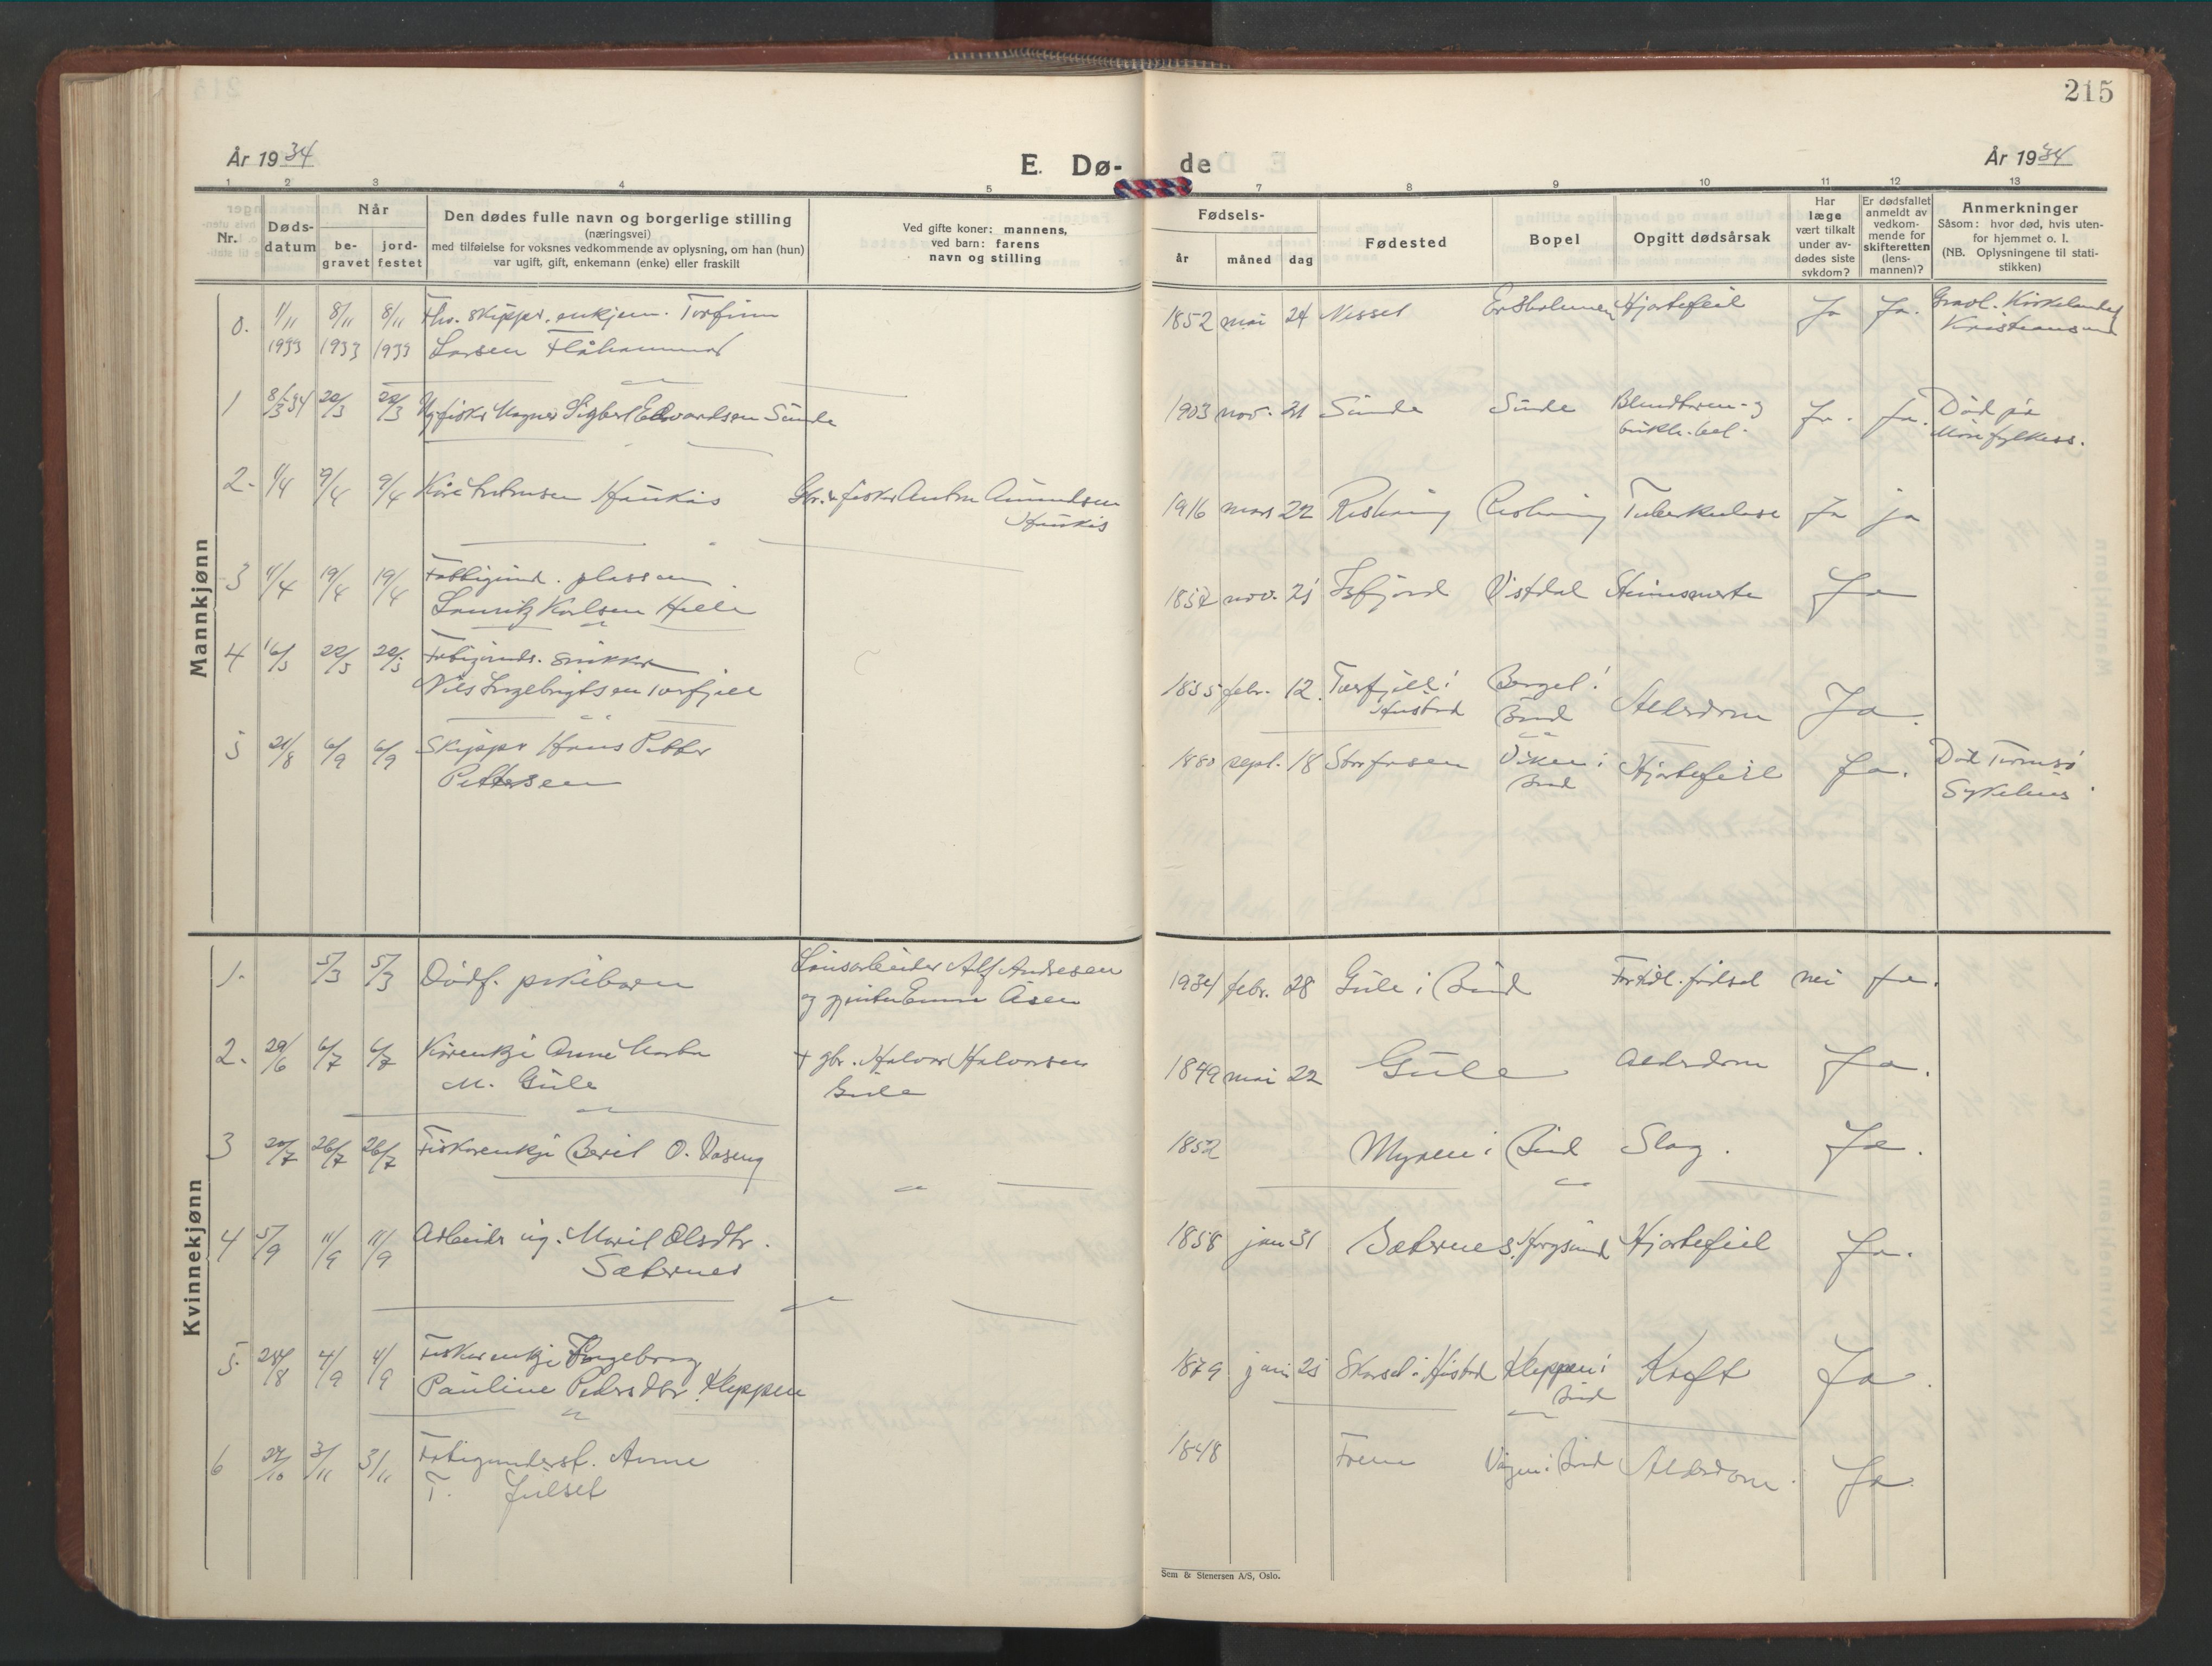 215
År 1934
E. Dø-
de
År 1934
1 2 3 4 5 7 8 9 10 11 12 13
Nr.
Døds-
datum
Når
be-
gravet
jord-
festet
Den dødes fulle navn og borgerlige stilling
(næringsvei)
med tilføielse for voksnes vedkommende av oplysning, om han (hun)
var ugift, gift, enkemann (enke) eller fraskilt
Ved gifte koner: mannens,
ved barn: farens
navn og stilling
Fødsels-
år måned dag
Fødested
Bopel
Opgitt dødsårsak
Har
læge
vært tilkalt
under av-
dødes siste
sykdom?
Er dødsfallet
anmeldt av
vedkom-
mende for
skifteretten
(lens-
mannen)?
Anmerkninger
Såsom: hvor død, hvis uten-
for hjemmet o. l.
(NB. Oplysningene til stati-
stikken)
Mannkjønn
0. 1/11 8/11 8/11 skipper, enkjem. Torfinn
1933 1933 1933 Larsen Flåhammer
1852 mai 24 Nesset Hjertefeil Ja Ja. Gravl. Kirkelandet
Kristiansund
1 8/3-34 22/3 22/3 fisker Magnus Sigbert Edvardsen Sunde
1903 nov. 21 Sunde Sunde Blindtarm- og
bukh.bet. Ja. Ja. Død på
Møre fylkess.
2. 1/4 9/4 9/4 Kåre Antonsen Haukås Gbr. & fisker Anton Amundsen
Haukås
1916 mars 22 Tuberkulose Ja ja
3 11/4 19/4 19/4 Fattigund. plassm.
Lauritz Karlsen Helle
nov. 21 Isfjord Vistdal Ja
4 16/5 22/5 22/5 snikker
Nils Ingebrigtsen Torfjell
1855 febr. 12. Tverfjell i
Hustad
i
Bud
Alderdom Ja.
5 21/8 6/9 6/9 Skipper Hans Petter
Pettersen
1880 sept. 18 Storfosen Viken i
Bud
Hjertefeil Ja. Død Tromsø
Sykehus
Kvinnekjønn
1. 5/3 5/3 Dødf. pikebarn Alf Andresen
og Åsen
1934 febr. 28 Gule i Bud Fortidl. fødsel nei ja.
2. 29/6 6/7 6/7 Kårenkje Anne Marta
M. Gule
+ gbr. Halvor Halvorsen
Gule
1849 mai 22 Gule Alderdom Ja.
3 20/7 26/7 26/7 Fiskerenkje Beret O. Vaseng
1852 Myren i Bud Slag. Ja.
4 5/9 11/9 11/9 Arbeider ug. Marit Olsdtr.
Sæternes
1858 jan 31 Sæternes. Hjertefeil Ja.
5. 28/8 4/9 4/9 Fiskerenkje Ingeborg
Pauline Pedersdtr. Kleppen
1879 Kleppen i
Bud
Kreft Ja.
6 27/10 3/11 3/11 Fatigunderst. Anne
T. Julset
1848 Fræna Vågen i Bud Alderdom. Ja.
Sem & Stenersen A/S, Oslo.